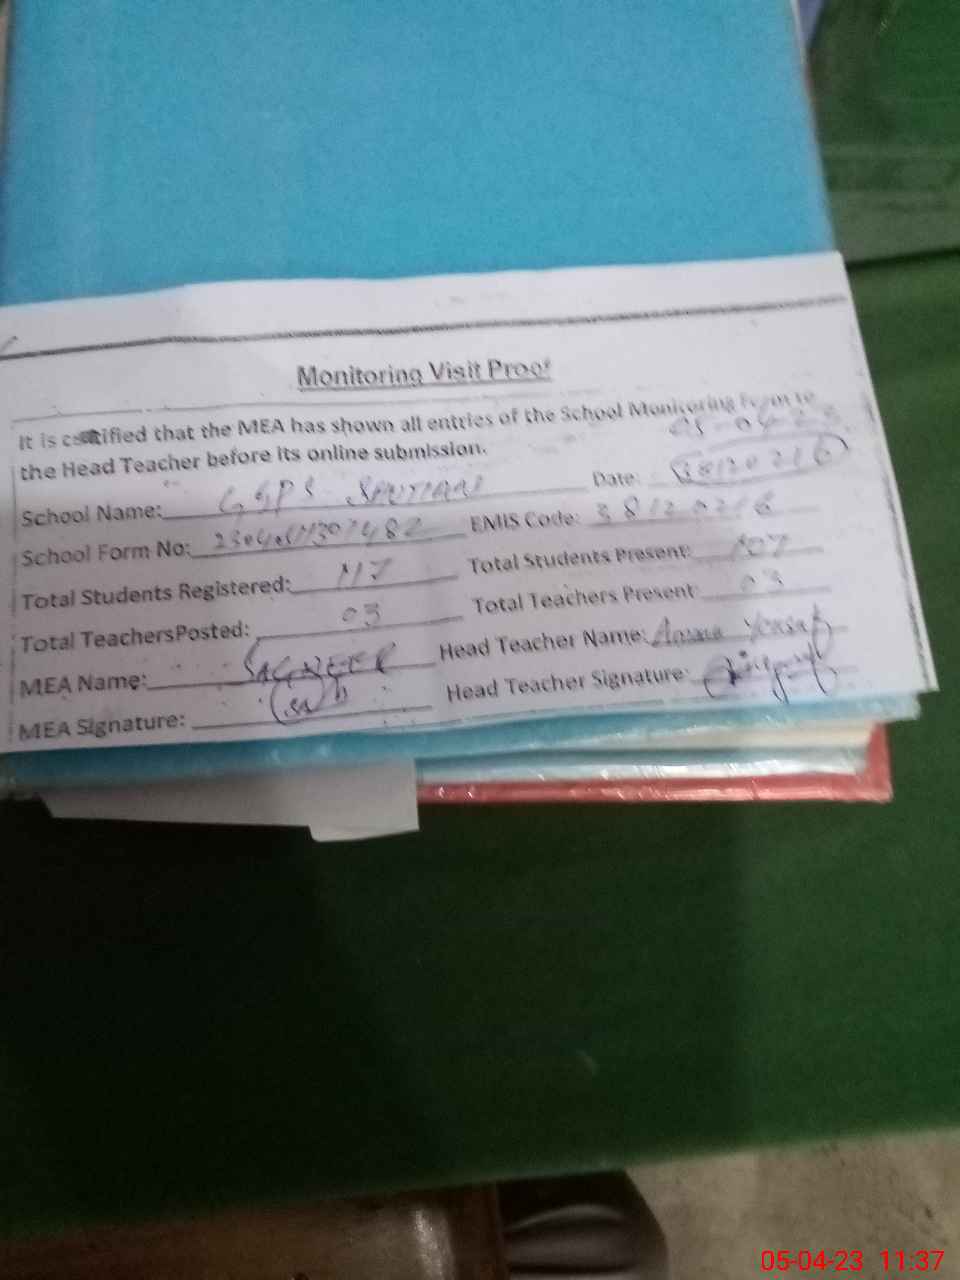 Monitoring Visit Proof
It is certified that the MEA has shown all entries of the School Monitoring Form to
the Head Teacher before its online submission.
05-04-23
Date: 38120216
School Name: GGPS
School Form No: EMIS Code: 38120216
Total Students Registered: 117 Total Students Present: 107
Total TeachersPosted: 03 Total Teachers Present: 03
MEA Name: SAGHEER Head Teacher Name: Amna Yousaf
MEA Signature: Head Teacher Signature:
05-04-23 11:37